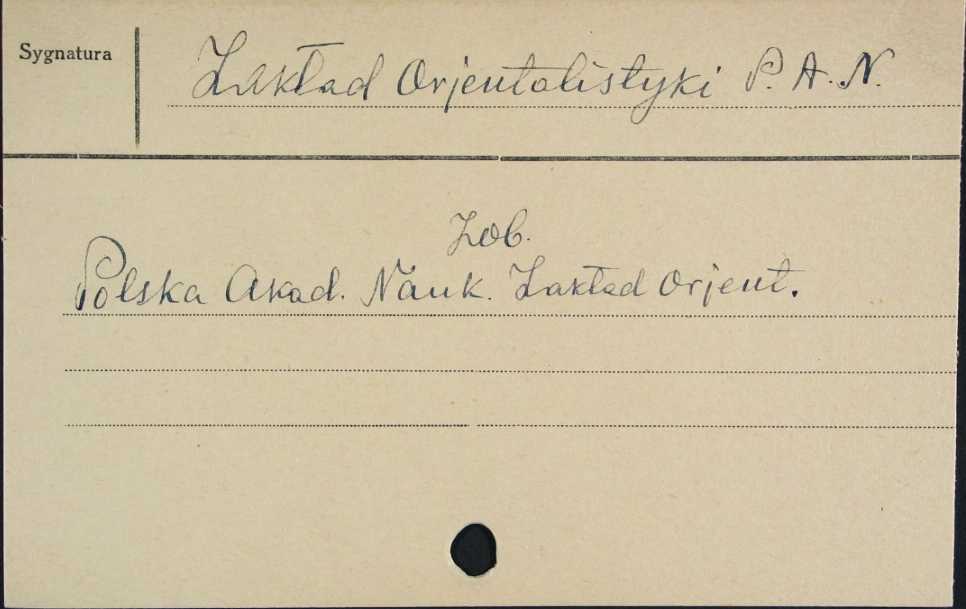 Sygnatura
Zakład Orjentalistyki P. A. N.
Zob.
Polska Akad. Nauk. Zakład Orjent.